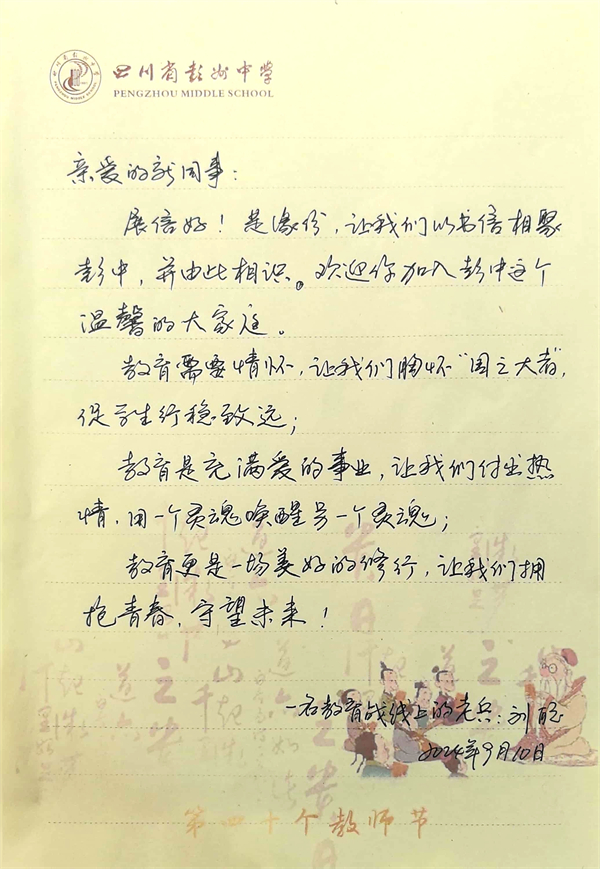 四川省彭州中学
PENGZHOU MIDDLE SCHOOL
亲爱的新同事：
展信好！是缘份，让我们以书信相聚
彭中，并由此相识。欢迎你加入彭中这个
温馨的大家庭。
教育需要情怀，让我们胸怀“国之大者”，
促学生行稳致远；
教育是充满爱的事业，让我们付出热
情，用一个灵魂唤醒另一个灵魂；
教育更是一场美好的修行，让我们拥
抱青春，守望未来！
一名教育战线上的老兵：刘聪
2024年9月10日
第四十个教师节